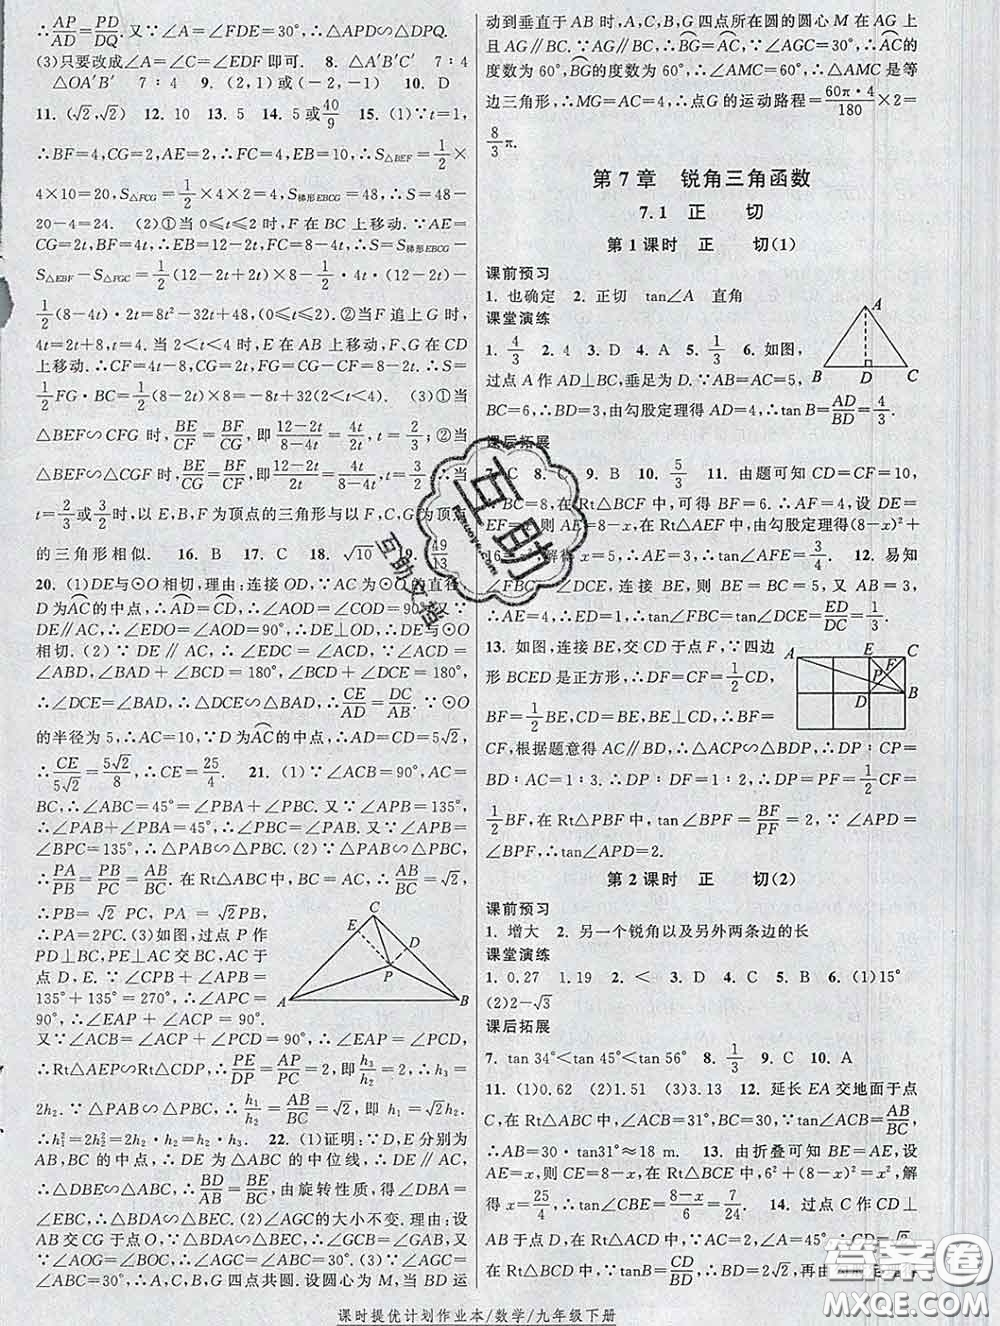 ∴AP/AD=PD/DQ. 又∵∠A=∠FDE=30°,∴△APD∽△DPQ.
(3)只要改成∠A=∠C=∠EDF即可. 8. △A′B′C′ 7∶4
△OA′B′ 7∶4 9. (2,1)或(-2,-1) 10. D
11. (√2,√2) 12. 10 13. 5 14. 5或40/9 15. (1)∵t=1,
∴BF=4,CG=2,AE=2,∴FC=4,EB=10,∴S△BEF=1/2×
4×10=20,S△FCG=1/2×4×2=4,S梯形EBCG=48,∴S=48-
20-4=24. (2)①当0≤t≤2时,F在BC上移动.∵AE=
CG=2t,BF=4t,∴EB=12-2t,FC=8-4t,∴S=S梯形EBCG-
S△EBF-S△FGC=1/2(12-2t+2t)×8-1/2·4t·(12-2t)-
1/2(8-4t)·2t=8t²-32t+48,(0≤t≤2).②当F追上G时,
4t=2t+8,t=4.当2<t<4时,E在AB上移动,F、G在CD
上移动.∴CF=4t-8,CG=2t,∴FG=2t-(4t-8)=8-2t,S=
1/2FG·BC=1/2(8-2t)×8=-8t+32(2<t<4). (3)①当
△BEF∽CFG时,BE/CF=BF/CG,即(12-2t)/(8-4t)=4t/2t,t=2/3;②当
△BEF∽△CGF时,BE/CG=BF/CF,即(12-2t)/2t=4t/(8-4t),t=3/2;∴当
t=2/3或3/2时,以E、B、F为顶点的三角形与以F、C、G为顶点
的三角形相似. 16. B 17. C 18. √10 19. 49/13
20. (1)DE与⊙O相切,理由:连接OD,∵AC为⊙O的直径
D为AC的中点,∴AD=CD,∴∠AOD=∠COD=90°,又∵
DE∥AC,∴∠EDO=∠AOD=90°,∴DE⊥OD,∴DE与⊙O
相切. (2)∵DE∥AC,∴∠EDC=∠ACD,∵∠ACD
=∠ABD,∵∠DCE+∠BCD=180°,∠BCD+∠BAD=180°,
∴∠DCE=∠BAD,∴△DCE∽△BAD,∴CE/AD=DC/AB.∵⊙O
的半径为5,∴AC=10,∵D为AC的中点,∴AD=CD=5√2,
∴CE/5√2=5√2/8,∴CE=25/4. 21. (1)∵∠ACB=90°,AC=
BC,∴∠ABC=45°=∠PBA+∠PBC.又∵∠APB=135°,
∴∠PAB+∠PBA=45°,∴∠PBC=∠PAB.又∵∠APB=
∠BPC=135°,∴△PAB∽△PBC. (2)∵△PAB∽△PBC,
∴PA/PB=PB/PC=AB/BC.在Rt△ABC中,BC=AC,∴AB/BC=√2,
∴PB=√2PC,PA=√2PB,
∴PA=2PC.(3)如图,过点P作
PD⊥BC,PE⊥AC交BC,AC于
点D,E.∵∠CPB+∠APB=
135°+135°=270°,∴∠APC=
90°,∴∠EAP+∠ACP=90°.
又∵∠ACB=∠ACP+∠PCD=90°,∴∠EAP=∠PCD,
∴Rt△AEP∽Rt△CDP,∴PE/DP=AP/PC=2,即h₃/h₂=2,∴h₃=
2h₂.∵△PAB∽△PBC,∴h₁/h₂=AB/BC=√2,即h₁=√2h₂,
∴h₁²=2h₂²=2h₂·h₂=h₂·h₃. 22. (1)证明:∵D,E分别为
AB,BC的中点,∴DE为△ABC的中位线,∴DE∥AC,
∴△DBE∽△ABC,∴BD/AB=BE/BC,由旋转性质,得∠DBA=
∠EBC,∴△BDA∽△BEC.(2)∠AGC的大小不变.理由:设
AB交CG于点O,∵△BDA∽△BEC,∴∠GAB=∠GCB,又
∵∠AOG=∠BOC,∴∠AGC=∠ABC=30°. (3)∵∠AGC=
∠ABC=30°,∴A,C,B,G四点共圆.设圆心为M,当BD运
动到垂直于AB时,A,C,B,G四点所在圆的圆心M在AG上
且AG∥BC.∵AG∥BC,∴BG=AC,∵∠AGC=30°,∴AC的
度数为60°,BG的度数为60°,∴∠AMC=60°,∴△AMC是等
边三角形,∴MG=AC=4,∴点G的运动路程=60π·4/180×2=
8/3π.
第7章 锐角三角函数
7.1 正 切
第1课时 正 切(1)
课前预习
1. 也确定 2. 正切 tan∠A 直角
课堂演练
1. 4/3 2. 4 3. D 4. A 5. 1/3 6. 如图,
过点A作AD⊥BC,垂足为D.∵AB=AC=5,
BC=6,∴BD=3,由勾股定理得AD=4,∴tanB=AD/BD=4/3.
A B D C
课后拓展
7. C 8. C 9. B 10. 5/3 11. 由题可知CD=CF=10,
BC=8,在Rt△BCF中,可得BF=6.∴AF=4,设DE=
EF=x,则AE=8-x,在Rt△AEF中,由勾股定理得(8-x)²+
16=x²,解得x=5,∴AE=3,∴tan∠AFE=3/4. 12. 易知
∠FBC=∠DCE,连接BE,则BE=BC=5,∵AB=3,
∴AE=4,∴ED=1,∴tan∠FBC=tan∠DCE=ED/DC=1/3.
13. 如图,连接BE,交CD于点F,∵四边
形BCED是正方形,∴DF=CF=1/2CD,
BF=1/2BE,CD=BE,BE⊥CD,∴BF=
CF,根据题意得AC∥BD,∴△ACP∽△BDP,∴DP∶CP=
BD∶AC=1∶3,∴DP∶DF=1∶2,∴DP=PF=1/2CF=
1/2BF,在Rt△PBF中,tan∠BPF=BF/PF=2,∵∠APD=
∠BPF,∴tan∠APD=2.
第2课时 正 切(2)
课前预习
1. 增大 2. 另一个锐角以及另外两条边的长
课堂演练
1. 0.27 1.19 2. < 3. D 4. C 5. B 6. (1)15°
(2)2-√3
课后拓展
7. tan 34°<tan 45°<tan 56° 8. 1/3 9. C 10. A
11. (1)0.62 (2)1.51 (3)3.13 12. 延长EA交地面于点
C,在Rt△ABC中,∠ACB=31°,BC=30,∵tan∠ACB=AB/BC,
∴AB=30·tan31°≈18 m. 13. 由折叠可知BE=AE,设
AE=x,则CE=8-x,在Rt△BCE中,6²+(8-x)²=x²,解
得x=25/4,∴tan∠CBE=(8-x)/6=7/24. 14. 过点C作CD⊥
AB于点D,在Rt△ACD中,∠A=45°,∴CD=AD=√2,
在Rt△BCD中,∵tanB=CD/BD,∴BD=2√2,再由勾股定理,
课时提优计划作业本/数学/九年级下册
互助
互助文档
答案圈